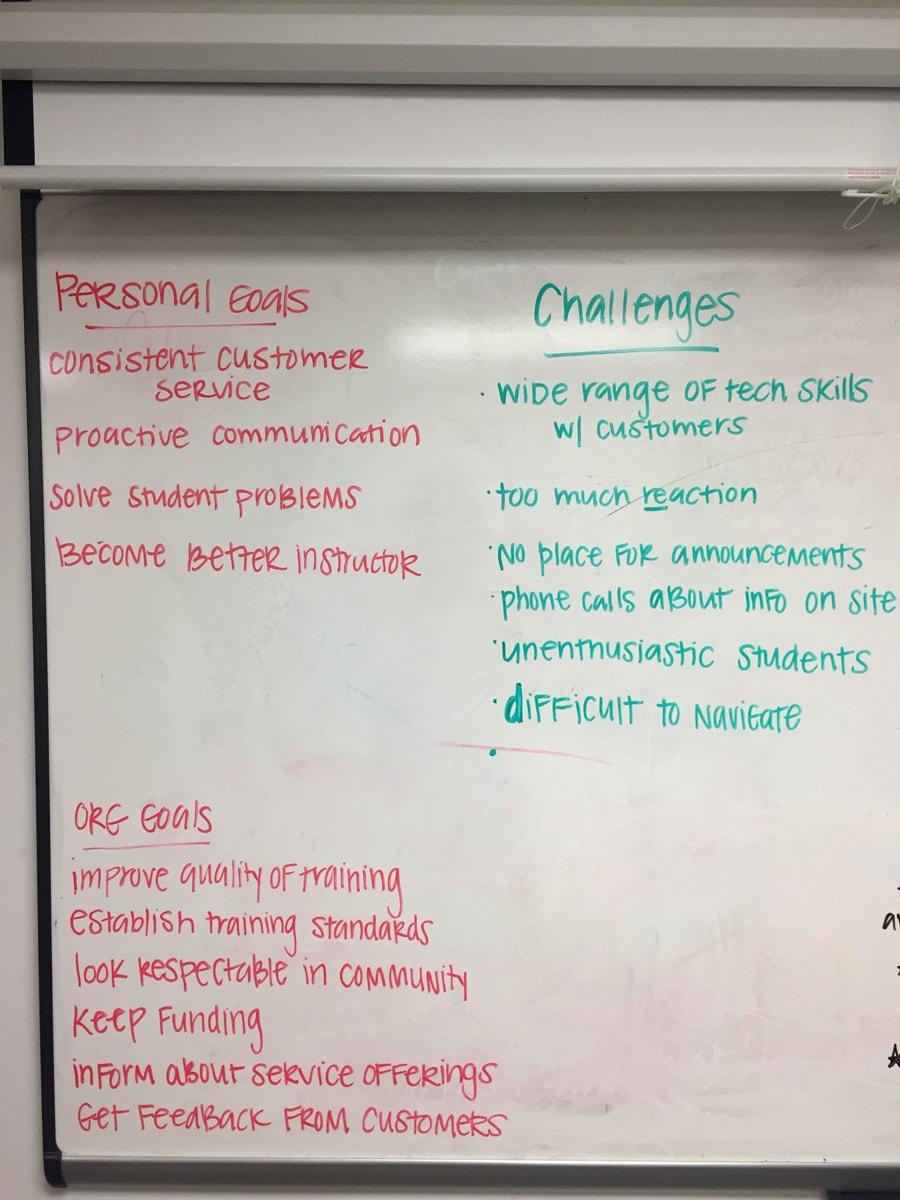 Personal Goals
consistent customer
service
proactive communication
solve student problems
Become Better instructor
Challenges
· wide range of tech skills
w/ customers
· too much reaction
· No place for announcements
· phone calls about info on site
· unenthusiastic students
· difficult to navigate
·
ORG Goals
improve quality of training
establish training standards
look respectable in community
Keep Funding
inform about service offerings
Get Feedback From customers